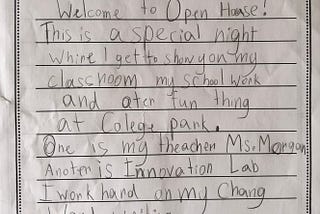 Welcome to Open House!
This is a special night
Where I get to show you my
classroom my school work
and ater fun thing
at Colege park.
One is my theacher Ms. Morgan
Anoter is Innovation Lab
I work hand on my Chang